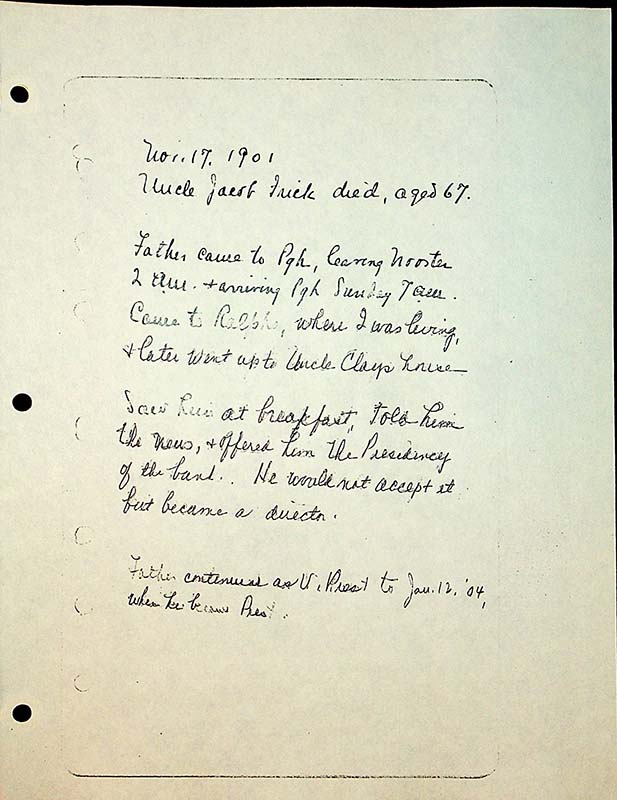 Nov. 17, 1901
Uncle Jacob Frick died, aged 67.
Father came to Pgh, leaving Wooster
2 am. + arriving Pgh Sunday 7 am.
Came to Ralphs, where I was living,
+ later went up to Uncle Clays house
Saw him at breakfast, told him
the news, + offered him the Presidency
of the bank.. He would not accept it
but became a director.
Father continued as V. Prest to Jan. 12, '04,
when he became Prest.